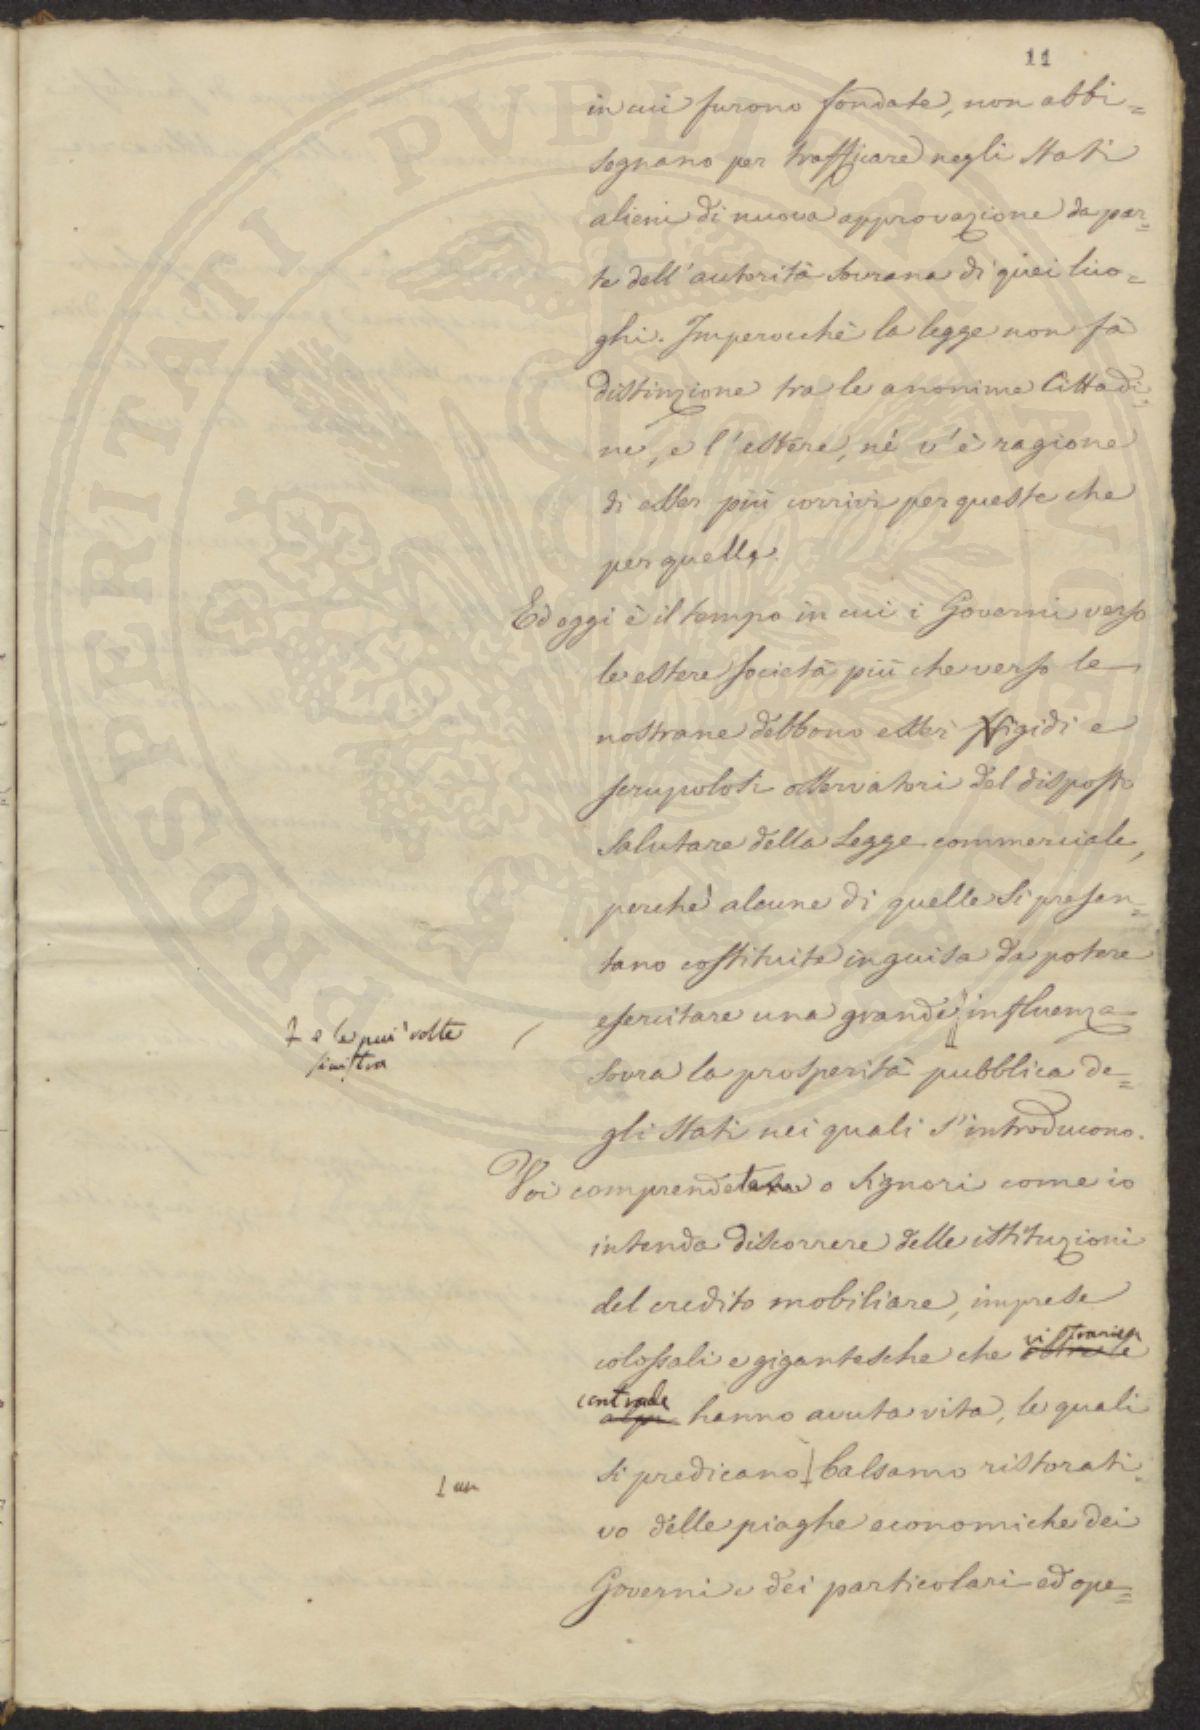 11
in cui furono fondate, non abbi=
sognano per trafficare negli Stati
alieni di nuova approvazione da par=
te dell'autorità sovrana di quei luo=
ghi. Imperocchè la legge non fà
distinzione tra le anonime Cittadi=
ne, e l'estere, né v'è ragione
di esser più corrivi per queste che
per quelle.
Ed oggi è il tempo in cui i Governi verso
le estere società più che verso le
nostrane debbono esser rigidi e
scrupolosi osservatori del disposto
salutare della Legge commerciale,
perchè alcune di quelle si presen=
tano costituite in guisa da potere
esercitare una grande influenza
e le più volte
sinistra
sovra la prosperità pubblica de=
gli Stati nei quali s'introducono.
Voi comprendete o Signori come io
intenda discorrere delle istituzioni
del credito mobiliare, imprese
colossali e gigantesche che oltre le
contrade
alpi hanno avuta vita, le quali
si predicano balsamo ristorati=
un
vo delle piaghe economiche dei
Governi e dei particolari ed ope=
PROSPERITATI PVBLICAE